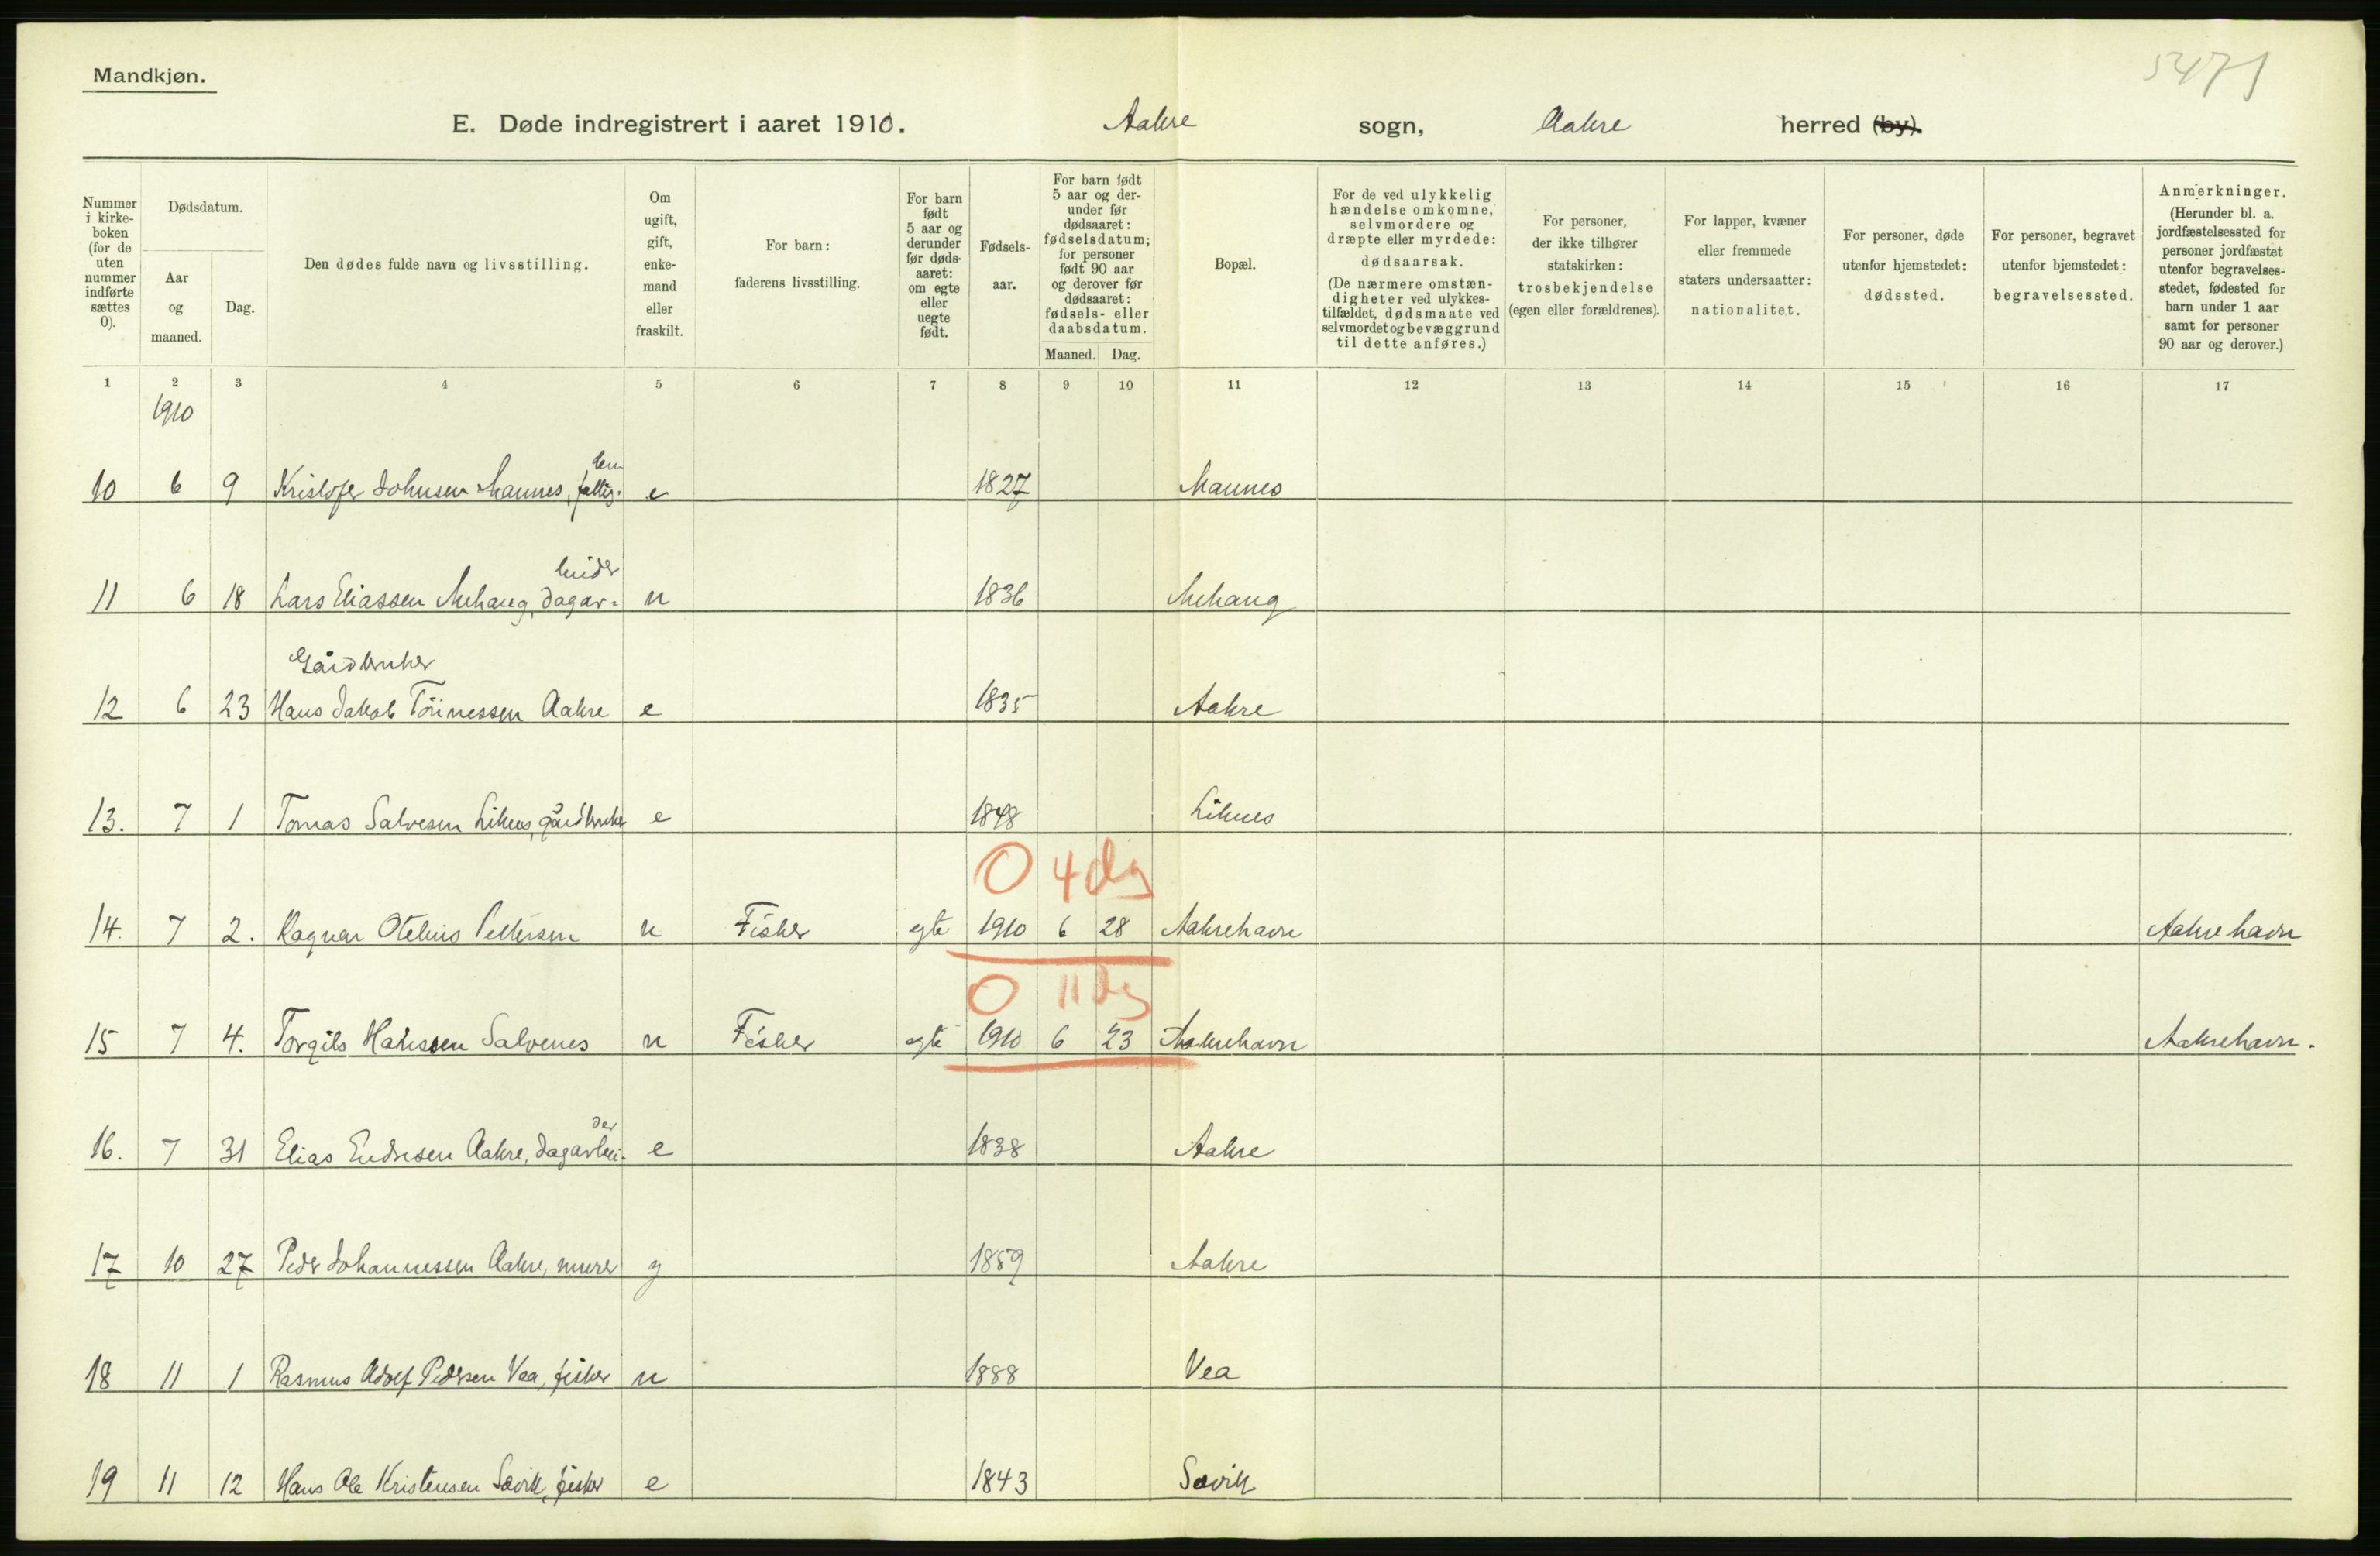 5471
Mandkjøn.
E. Døde indregistrert i aaret 1910. Aakre sogn, Aakre herred (by).
Nummer i kirke-boken (for de uten nummer indførte sættes 0).
Dødsdatum.
Aar og maaned.
Dag.
Den dødes fulde navn og livsstilling.
Om ugift, gift, enke-mand eller fraskilt.
For barn: faderens livsstilling.
For barn født 5 aar og derunder før døds-aaret: om egte eller uegte født.
Fødsels-aar.
For barn født 5 aar og der-under før dødsaaret: fødselsdatum; for personer født 90 aar og derover før dødsaaret: fødsels- eller daabsdatum.
Maaned. Dag.
Bopæl.
For de ved ulykkelig hændelse omkomne, selvmordere og dræpte eller myrdede: dødsaarsak. (De nærmere omstæn-digheter ved ulykkes-tilfældet, dødsmaate ved selvmordet og bevæggrund til dette anføres.)
For personer, der ikke tilhører statskirken: trosbekjendelse (egen eller forældrenes).
For lapper, kvæner eller fremmede staters undersaatter: nationalitet.
For personer, døde utenfor hjemstedet: dødssted.
For personer, begravet utenfor hjemstedet: begravelsessted.
Anmerkninger. (Herunder bl. a. jordfæstelsessted for personer jordfæstet utenfor begravelses-stedet, fødested for barn under 1 aar samt for personer 90 aar og derover.)
1 2 3 4 5 6 7 8 9 10 11 12 13 14 15 16 17
1910
lem
10 6 9 Kristofer Johnsen Mannes, fattig- e 1827 Mannes
beider
11 6 18 Lars Eliassen Mehaug, dagar- u 1836 Mehaug
Gårdbruker
12 6 23 Hans Jakob Tönnessen Aakre e 1835 Aakre
13. 7 1 Tomas Salvesen Liknes, gårdbruker e 1848 Liknes
0 4 dg
14. 7 2. Ragnar Otelius Pettersen u Fisker egte 1910 6 28 Aakrehavn Aakrehavn
0 11 dg
15 7 4. Torgils Hansen Salvenes u Fisker egte 1910 6 23 Aakrehavn Aakrehavn.
der
16. 7 31 Elias Endresen Aakre, dagarbei- e 1838 Aakre
17 10 27 Peder Johannessen Aakre, murer g 1859 Aakre
18 11 1 Rasmus Adolf Pedersen Vea, fisker u 1888 Vea
19 11 12 Hans Ole Kristensen Sævik, fisker e 1843 Sævik